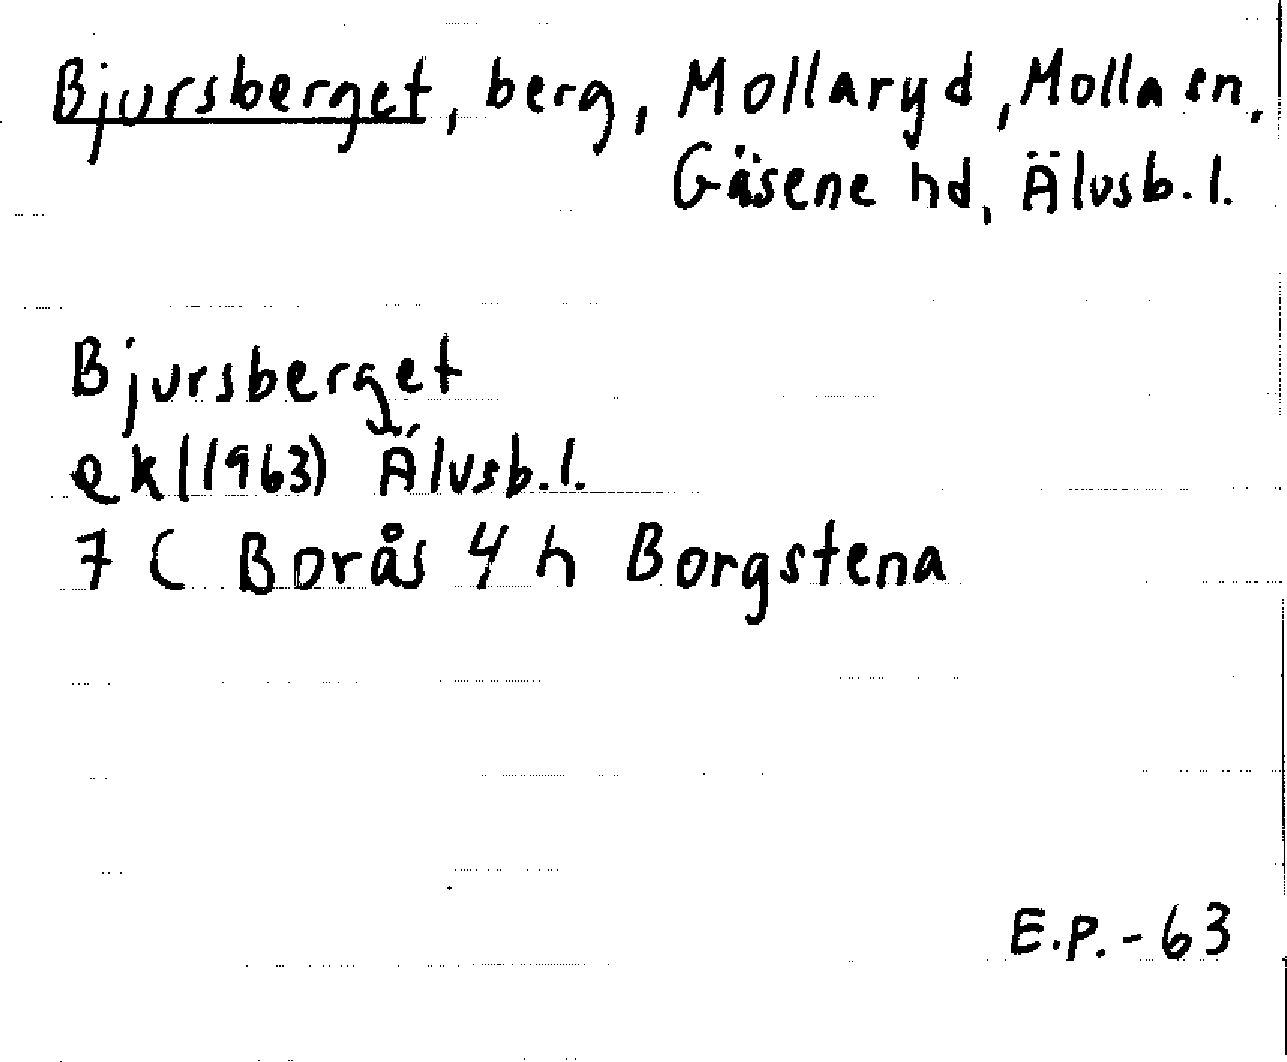 Bjursberget, berg, Mollaryd, Molla sn,
Gäsene hd, Älvsb. l.
Bjursberget
ek (1963) Älvsb. l.
7 C Borås 4 h Borgstena
E.P. - 63